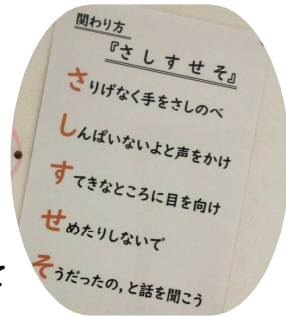 関わり方
『さしすせそ』
さりげなく手をさしのべ
しんぱいないよと声をかけ
すてきなところに目を向け
せめたりしないで
そうだったの,と話を聞こう